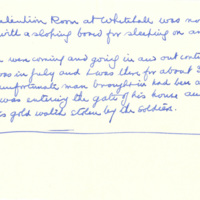 Detention Room at Whitehall was no
with a sloping board for sleeping on an
were coming and going in and out cont
was in July and I was there for about 3
unfortunate man brought in had been a
was entering the gate of his house an
gold watch stolen by the soldiers.